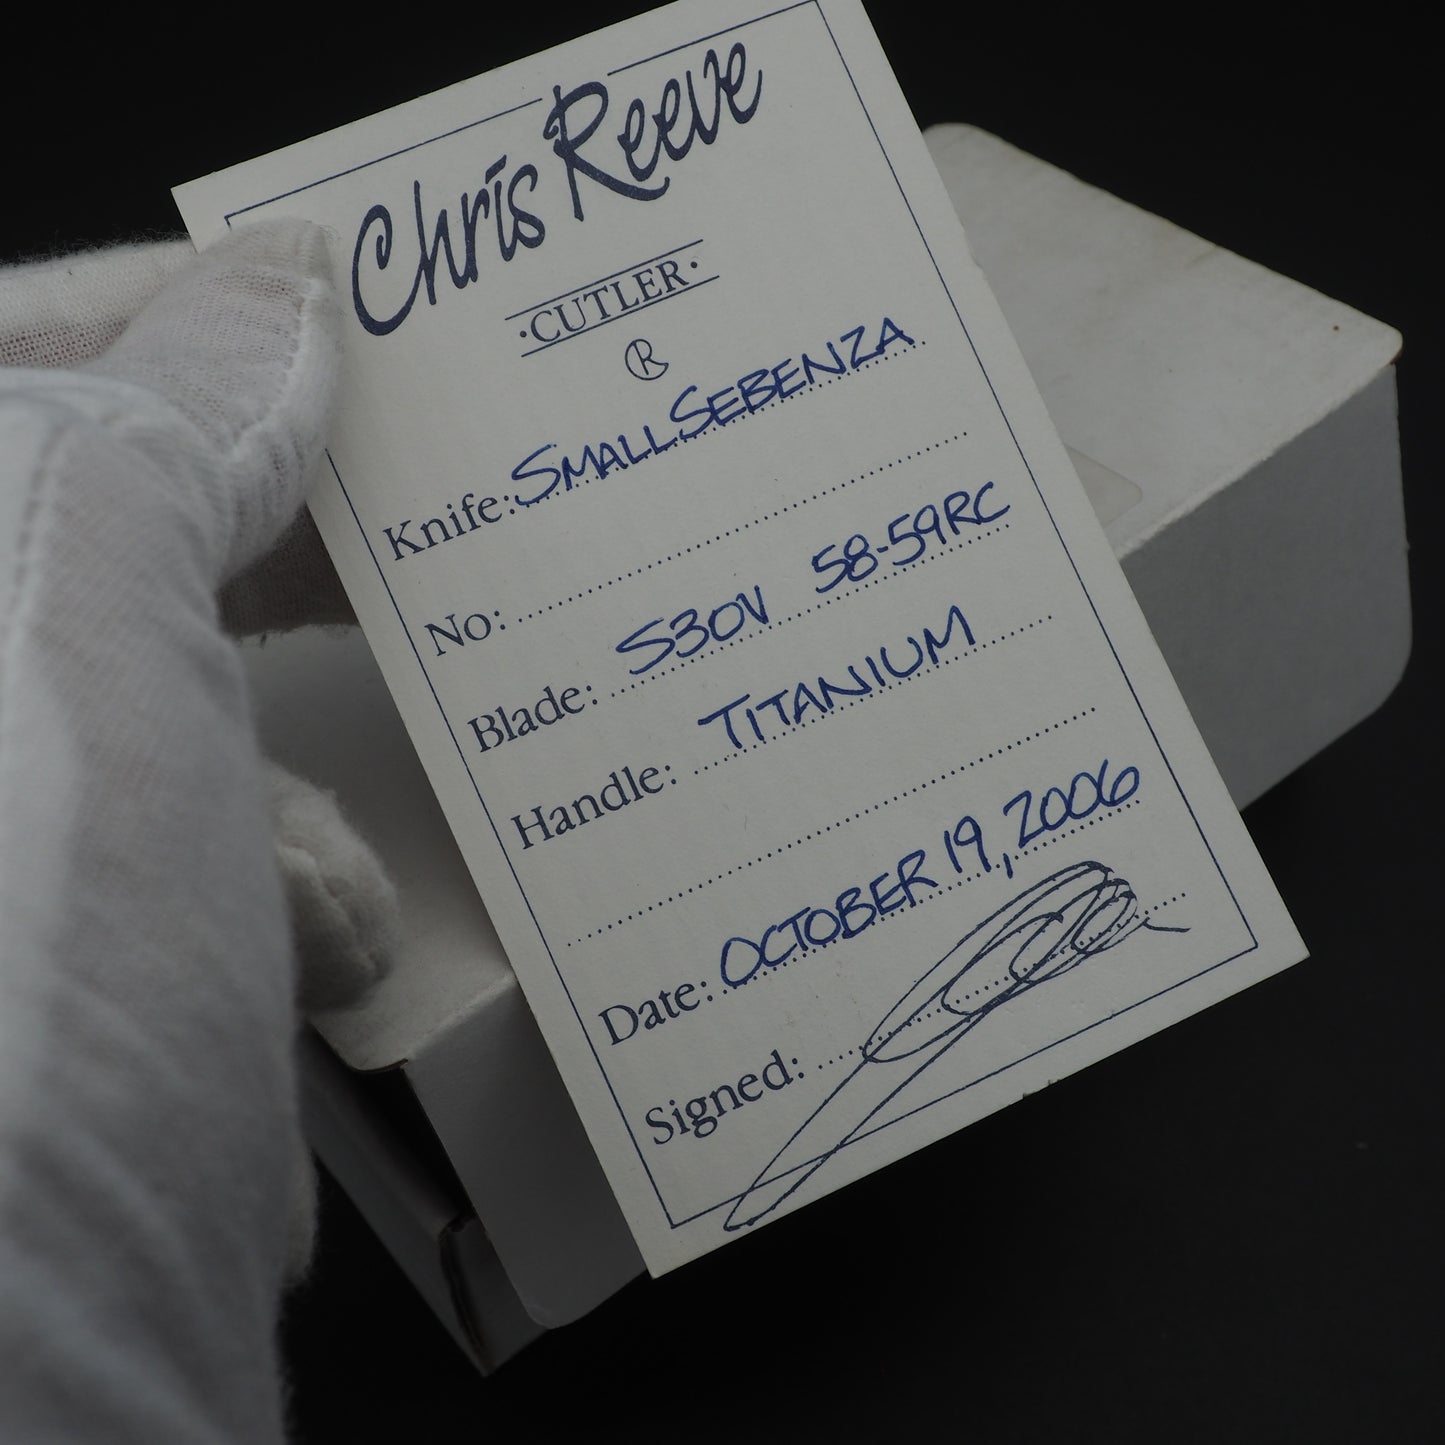 Chris Reeve
·CUTLER·
R
Knife: SMALL SEBENZA
No:
Blade: S30V 58-59RC
Handle: TITANIUM
Date: OCTOBER 19, 2006
Signed: